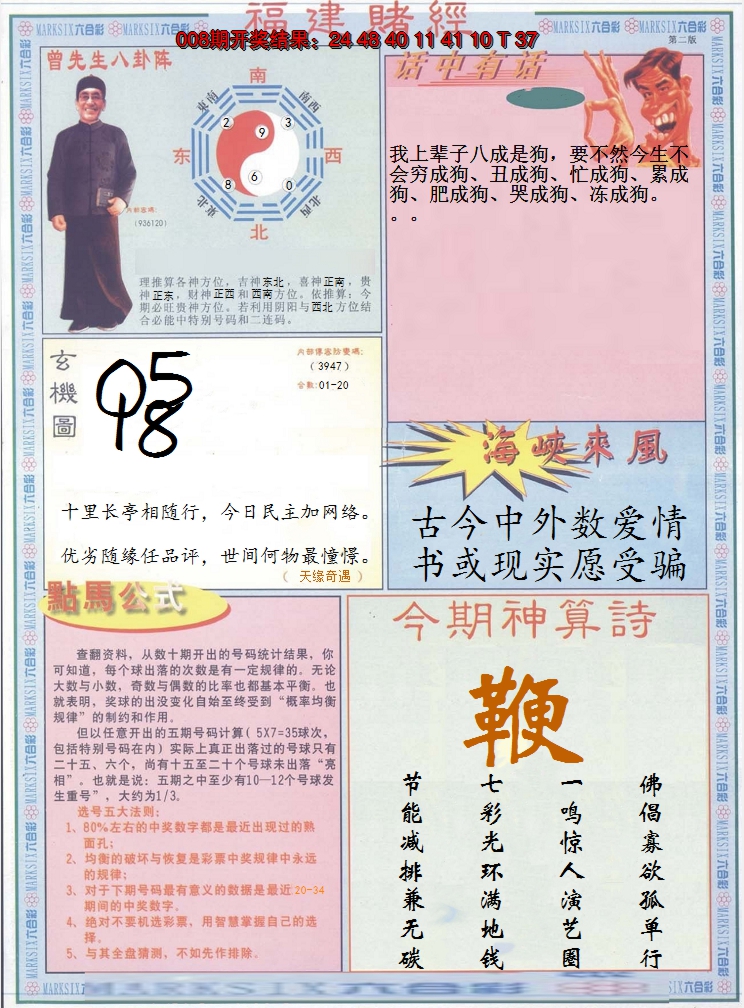 福建賭經
008期开奖结果：24 48 40 11 41 10 T 37
MARKSIX六合彩
第二版
曾先生八卦阵
南
东南
南西
2
9
3
东
西
8
6
0
東北
北西
北
内部密碼:
(936120)
理推算各神方位，吉神东北，喜神正南，贵
神正东，财神正西和西南方位。依推算：今
期必旺贵神方位。若利用阴阳与西北方位结
合必能中特别号码和二连码。
话中有话
我上辈子八成是狗，要不然今生不
会穷成狗、丑成狗、忙成狗、累成
狗、肥成狗、哭成狗、冻成狗。
。。
玄機圖
(3947)
合數:01-20
十里长亭相随行，今日民主加网络。
优劣随缘任品评，世间何物最憧憬。
（ 天缘奇遇 ）
海峽來風
古今中外数爱情
书或现实愿受骗
點馬公式
查翻资料，从数十期开出的号码统计结果，你
可知道，每个球出落的次数是有一定规律的。无论
大数与小数，奇数与偶数的比率也都基本平衡。也
就表明，奖球的出没变化自始至终受到“概率均衡
规律”的制约和作用。
但以任意开出的五期号码计算( 5X7=35球次，
包括特别号码在内) 实际上真正出落过的号球只有
二十五、六个，尚有十五至二十个号球未出落“亮
相”。也就是说：五期之中至少有10—12个号球发
生重号”，大约为1/3。
选号五大法则：
1、80%左右的中奖数字都是最近出现过的熟
面孔；
2、均衡的破坏与恢复是彩票中奖规律中永远
的规律；
3、对于下期号码最有意义的数据是最近20-34
期间的中奖数字。
4、绝对不要机选彩票，用智慧掌握自己的选
择。
5、与其全盘猜测，不如先作排除。
今期神算詩
鞭
佛倡寡欲孤单行
一鸣惊人演艺圈
七彩光环满地钱
节能减排兼无碳